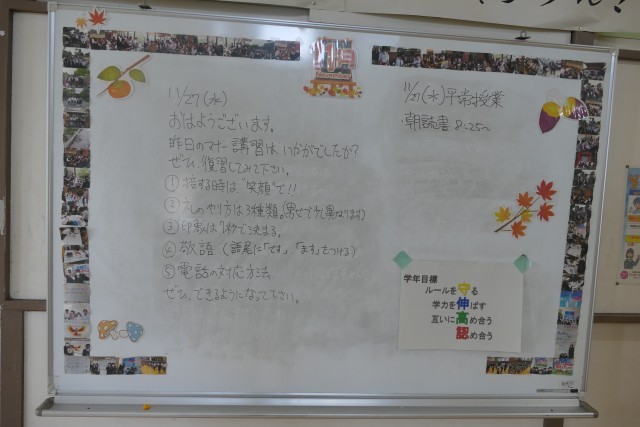 11/27(水)
おはようございます。
昨日のマナー講習は、いかがでしたか?
ぜひ、復習してみて下さい。
①接する時は、"笑顔"で!!
②礼のやり方は3種類。(男女で少し異なります)
③印象は7秒で決まる。
④敬語(語尾に「です」、「ます」をつける)
⑤電話の対応方法
ぜひ、できるようになって下さい。
11/27(水)平常授業
朝読書 8:25〜
学年目標
ルールを守る
学力を伸ばす
互いに高め合う
認め合う